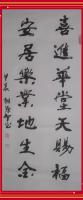 喜進華堂天賜福
安居樂業地生金